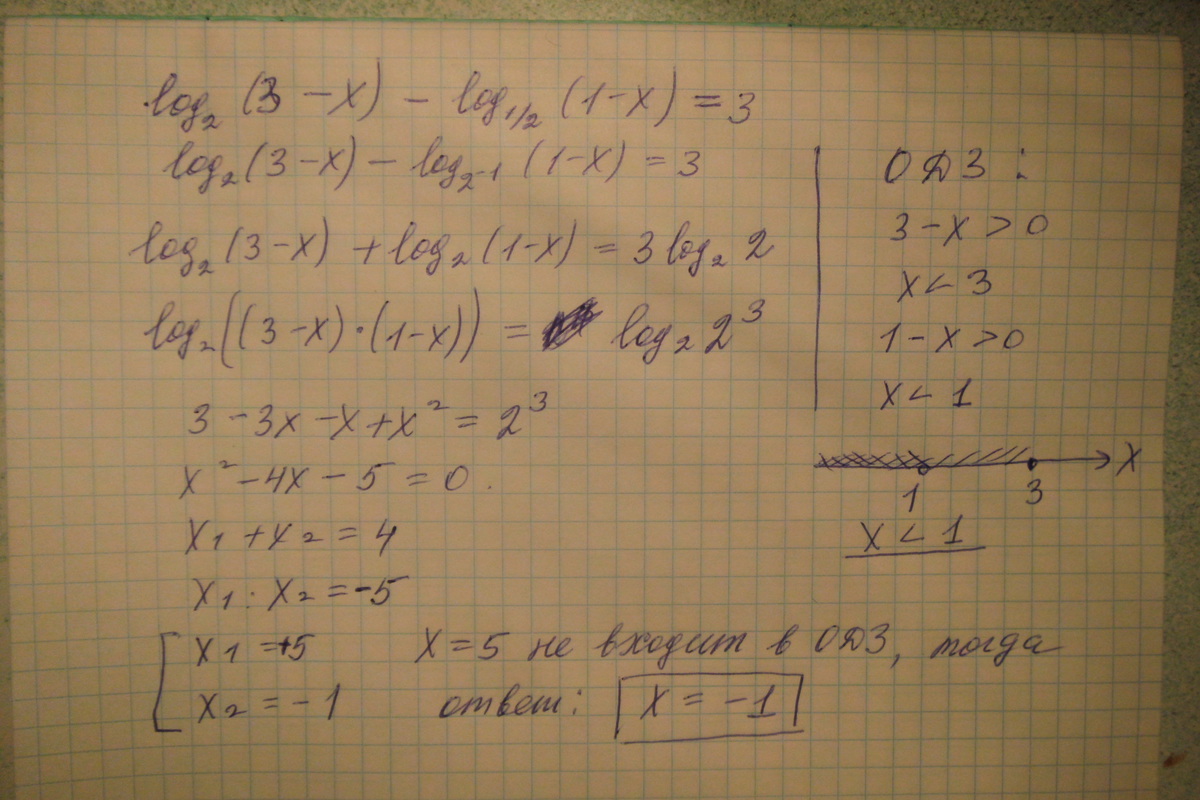 log₂ (3 − x) − log₁/₂ (1 − x) = 3
log₂ (3 − x) − log₂₋₁ (1 − x) = 3
log₂ (3 − x) + log₂ (1 − x) = 3 log₂ 2
log₂ ((3 − x) · (1 − x)) = log₂ 2³
3 − 3x − x + x² = 2³
x² − 4x − 5 = 0.
x₁ + x₂ = 4
x₁ : x₂ = −5
x₁ = +5
x₂ = −1
x = 5 не входит в ОДЗ, тогда
ответ: x = −1
ОДЗ:
3 − x > 0
x < 3
1 − x > 0
x < 1
1 3 x
x < 1